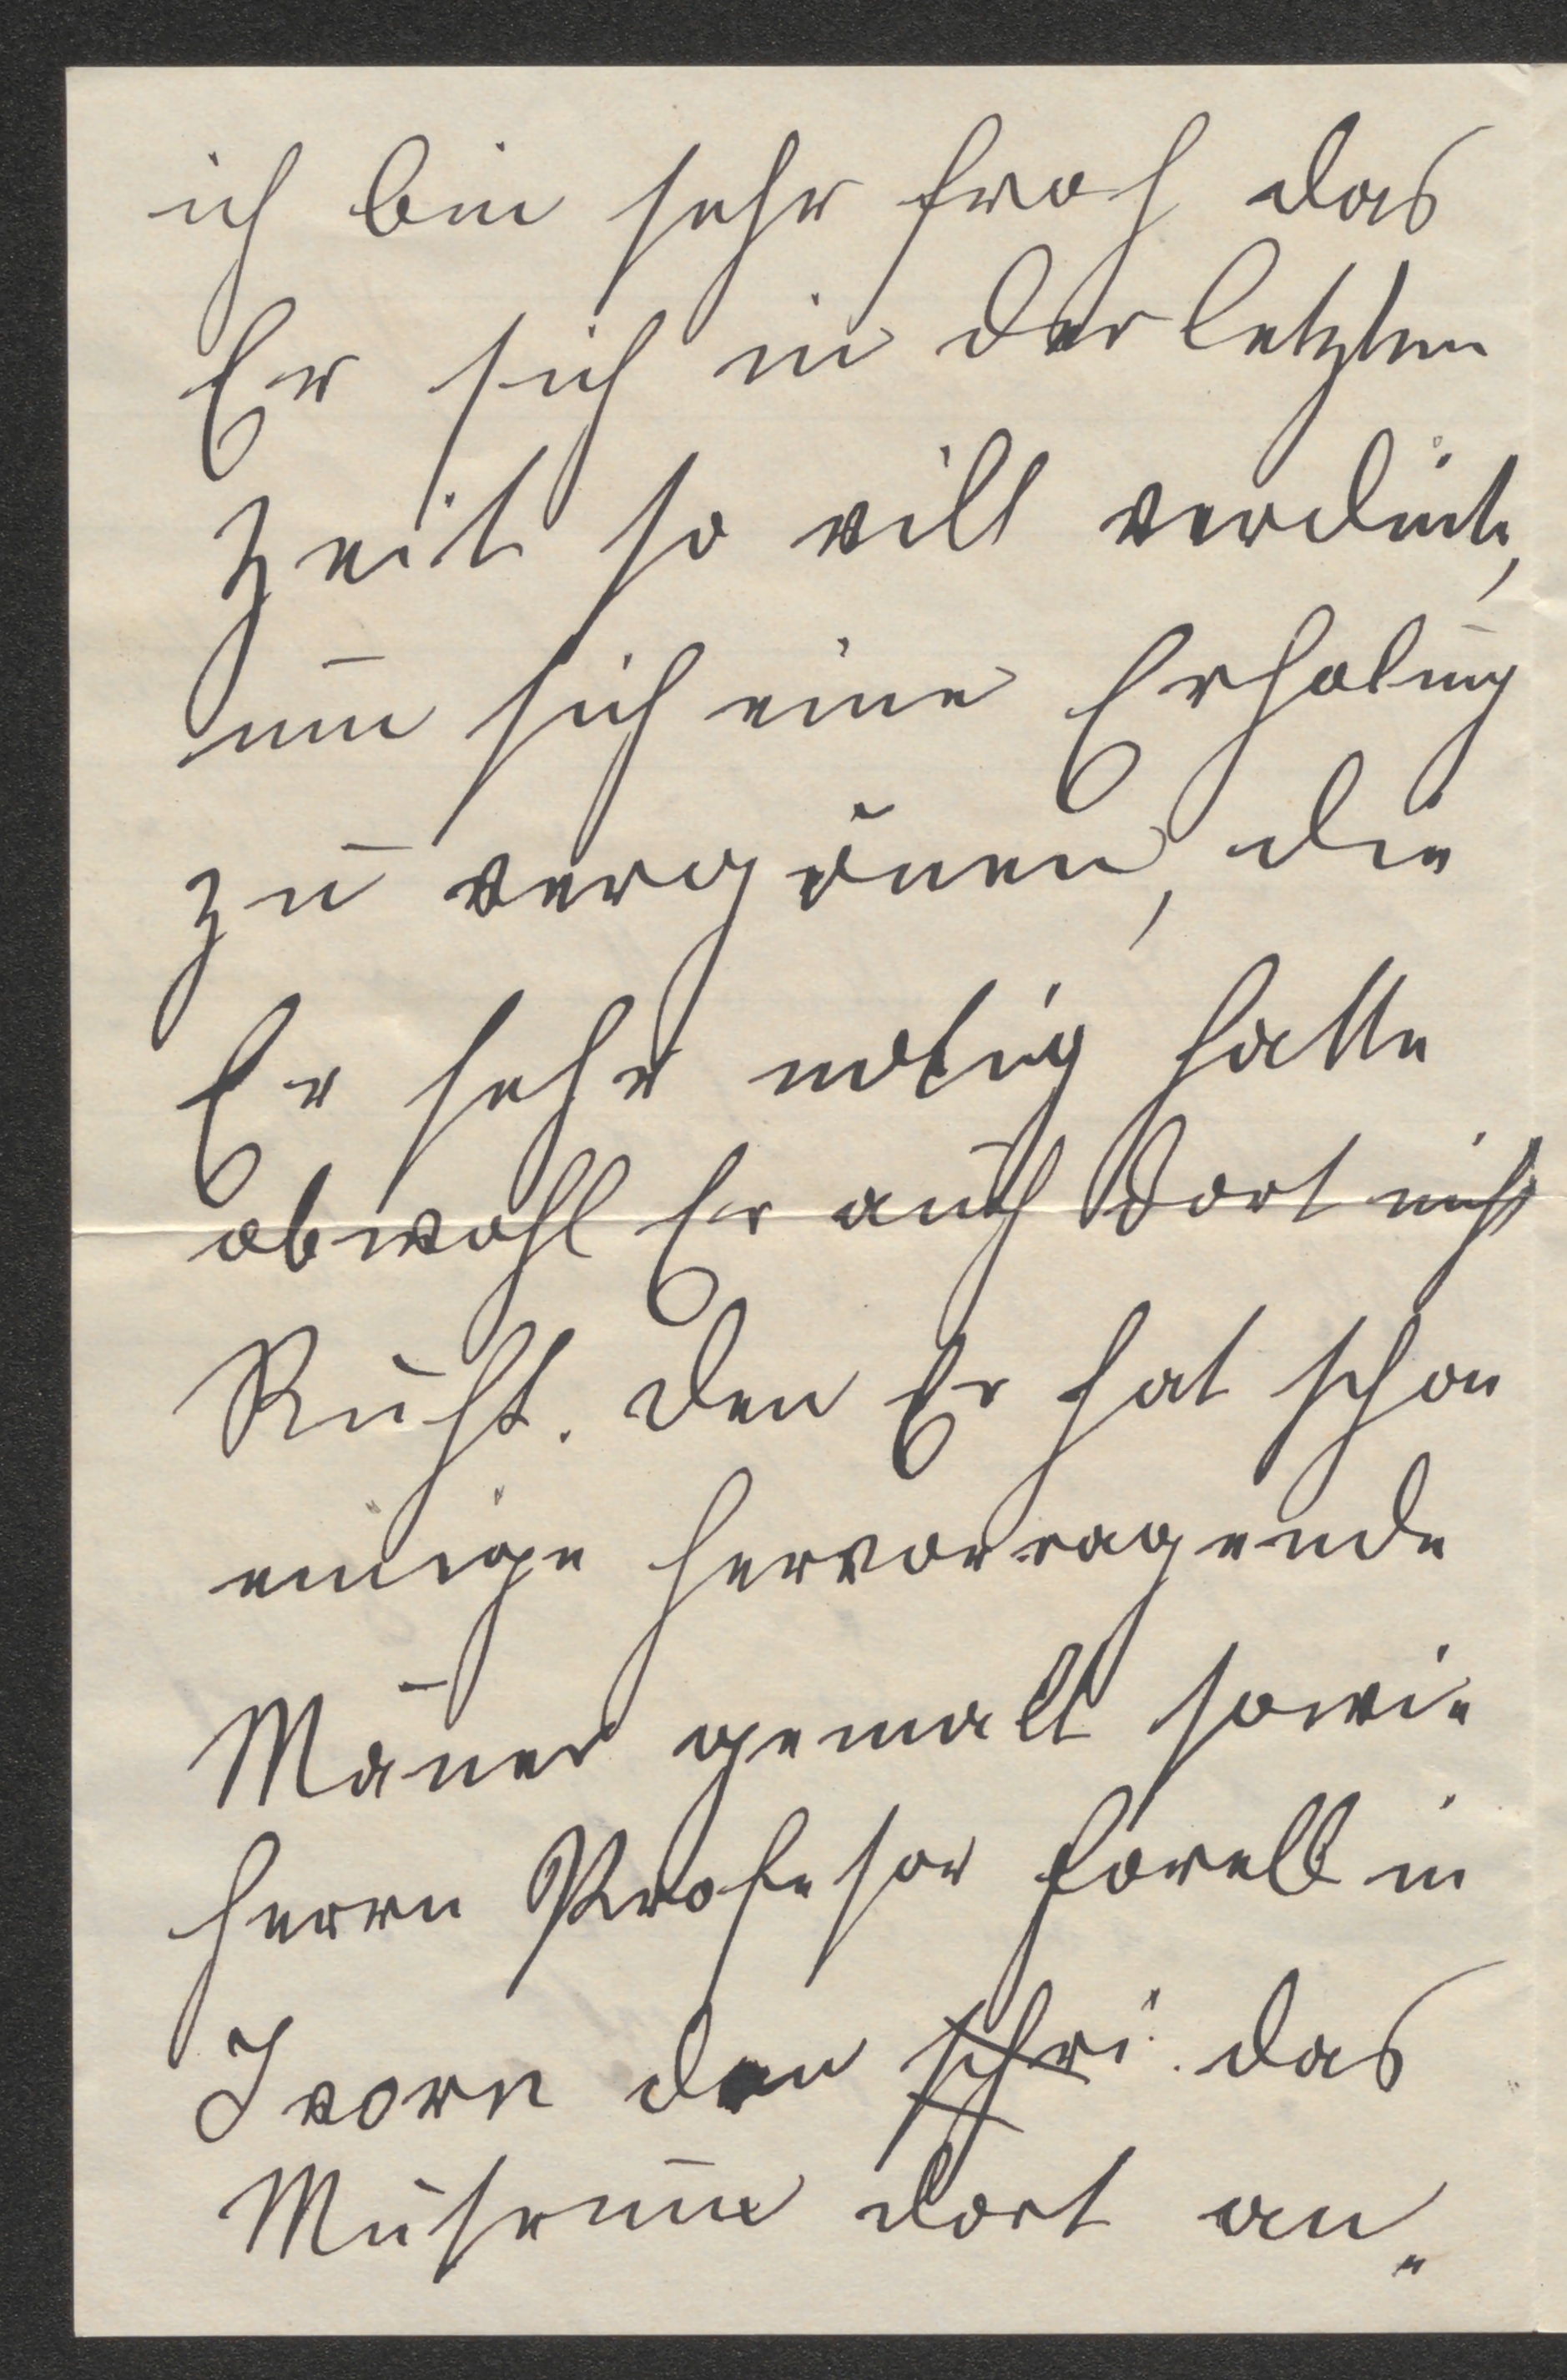 ich bin sehr froh das
Er sich in der letzten
Zeit so vill verdint,
um sich eine Erholung
zu vergönen, die
Er sehr notig hatte
obwohl Er auch dort nicht
Ruht. den Er hat schon
einige hervorragende
Mäner gemalt sowie
Herrn Profesor Forell in
Ivorn den schri. das
Museum dort an„